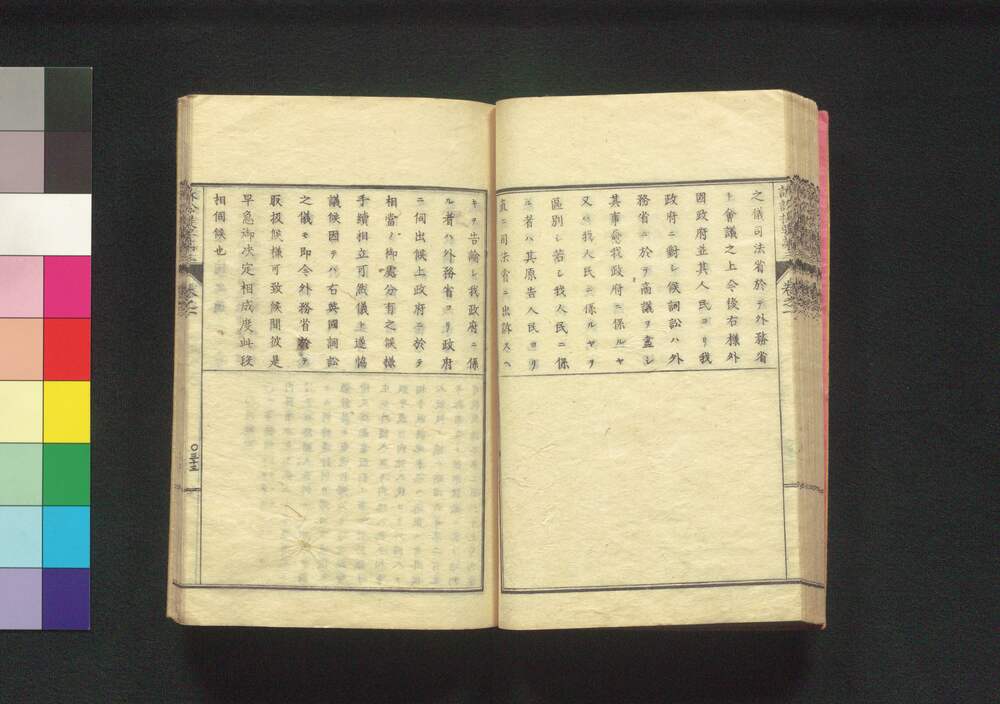 之儀司法省於テ外務省
ト會議之上今後右様外
國政府並其人民ヨリ我
政府ニ對シ候詞訟ハ外
務省ニ於テ高議ヲ盡シ
其事愈我政府ニ係ルヤ
又ハ我人民ニ係ルヤヲ
區別シ若シ我人民ニ係
ル者ハ其原告人民ヨリ
直ニ司法省ニ出訴スヘ
キヲ告諭シ我政府ニ係
ル者ハ外務省ヨリ政府
ニ伺出候上政府ニ於テ
相當ノ御處分有之候様
手續相立可然儀ト遂協
議候因テハ右英國詞訟
之儀モ即今外務省於テ
取扱候様可致候間彼是
早急御决定相成度此段
相伺候也
卷之一
〇三十五